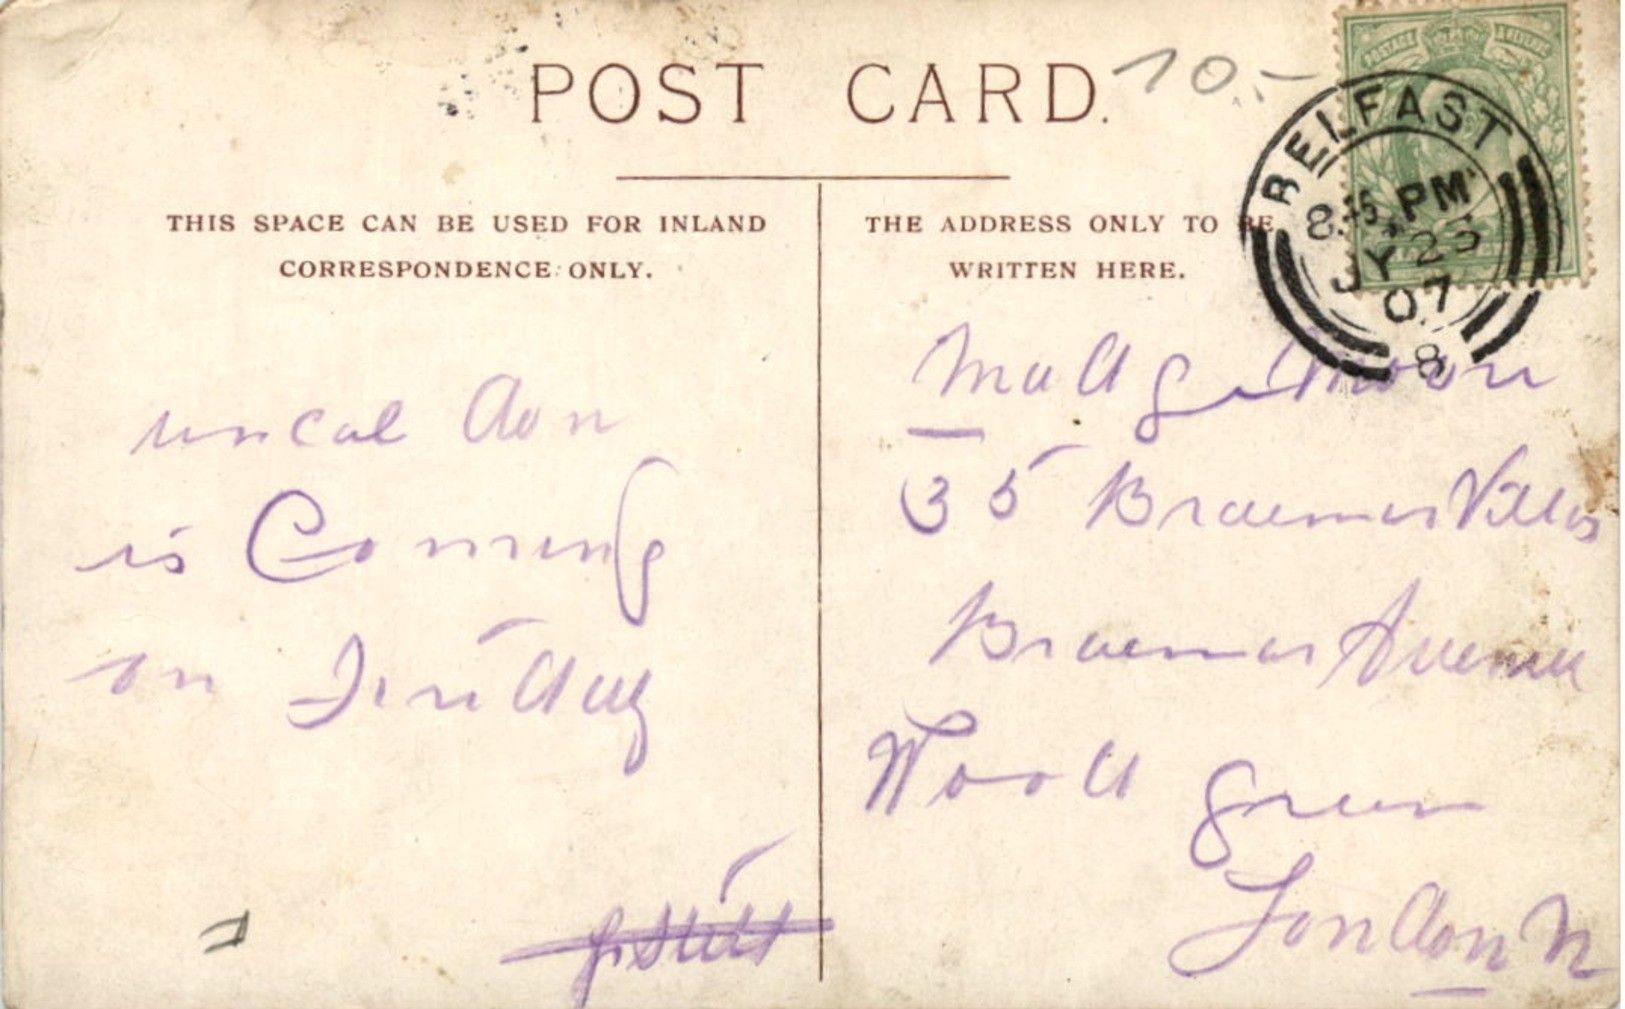 POST CARD.
10.-
POSTAGE & REVENUE
BELFAST
8.45 PM
JY 23
07
8
THIS SPACE CAN BE USED FOR INLAND
CORRESPONDENCE ONLY.
THE ADDRESS ONLY TO BE
WRITTEN HERE.
uncal don
is Coming
on Friday
Madge Moon
35 Braemar Villas
Braemar Avenue
Wood green
London N